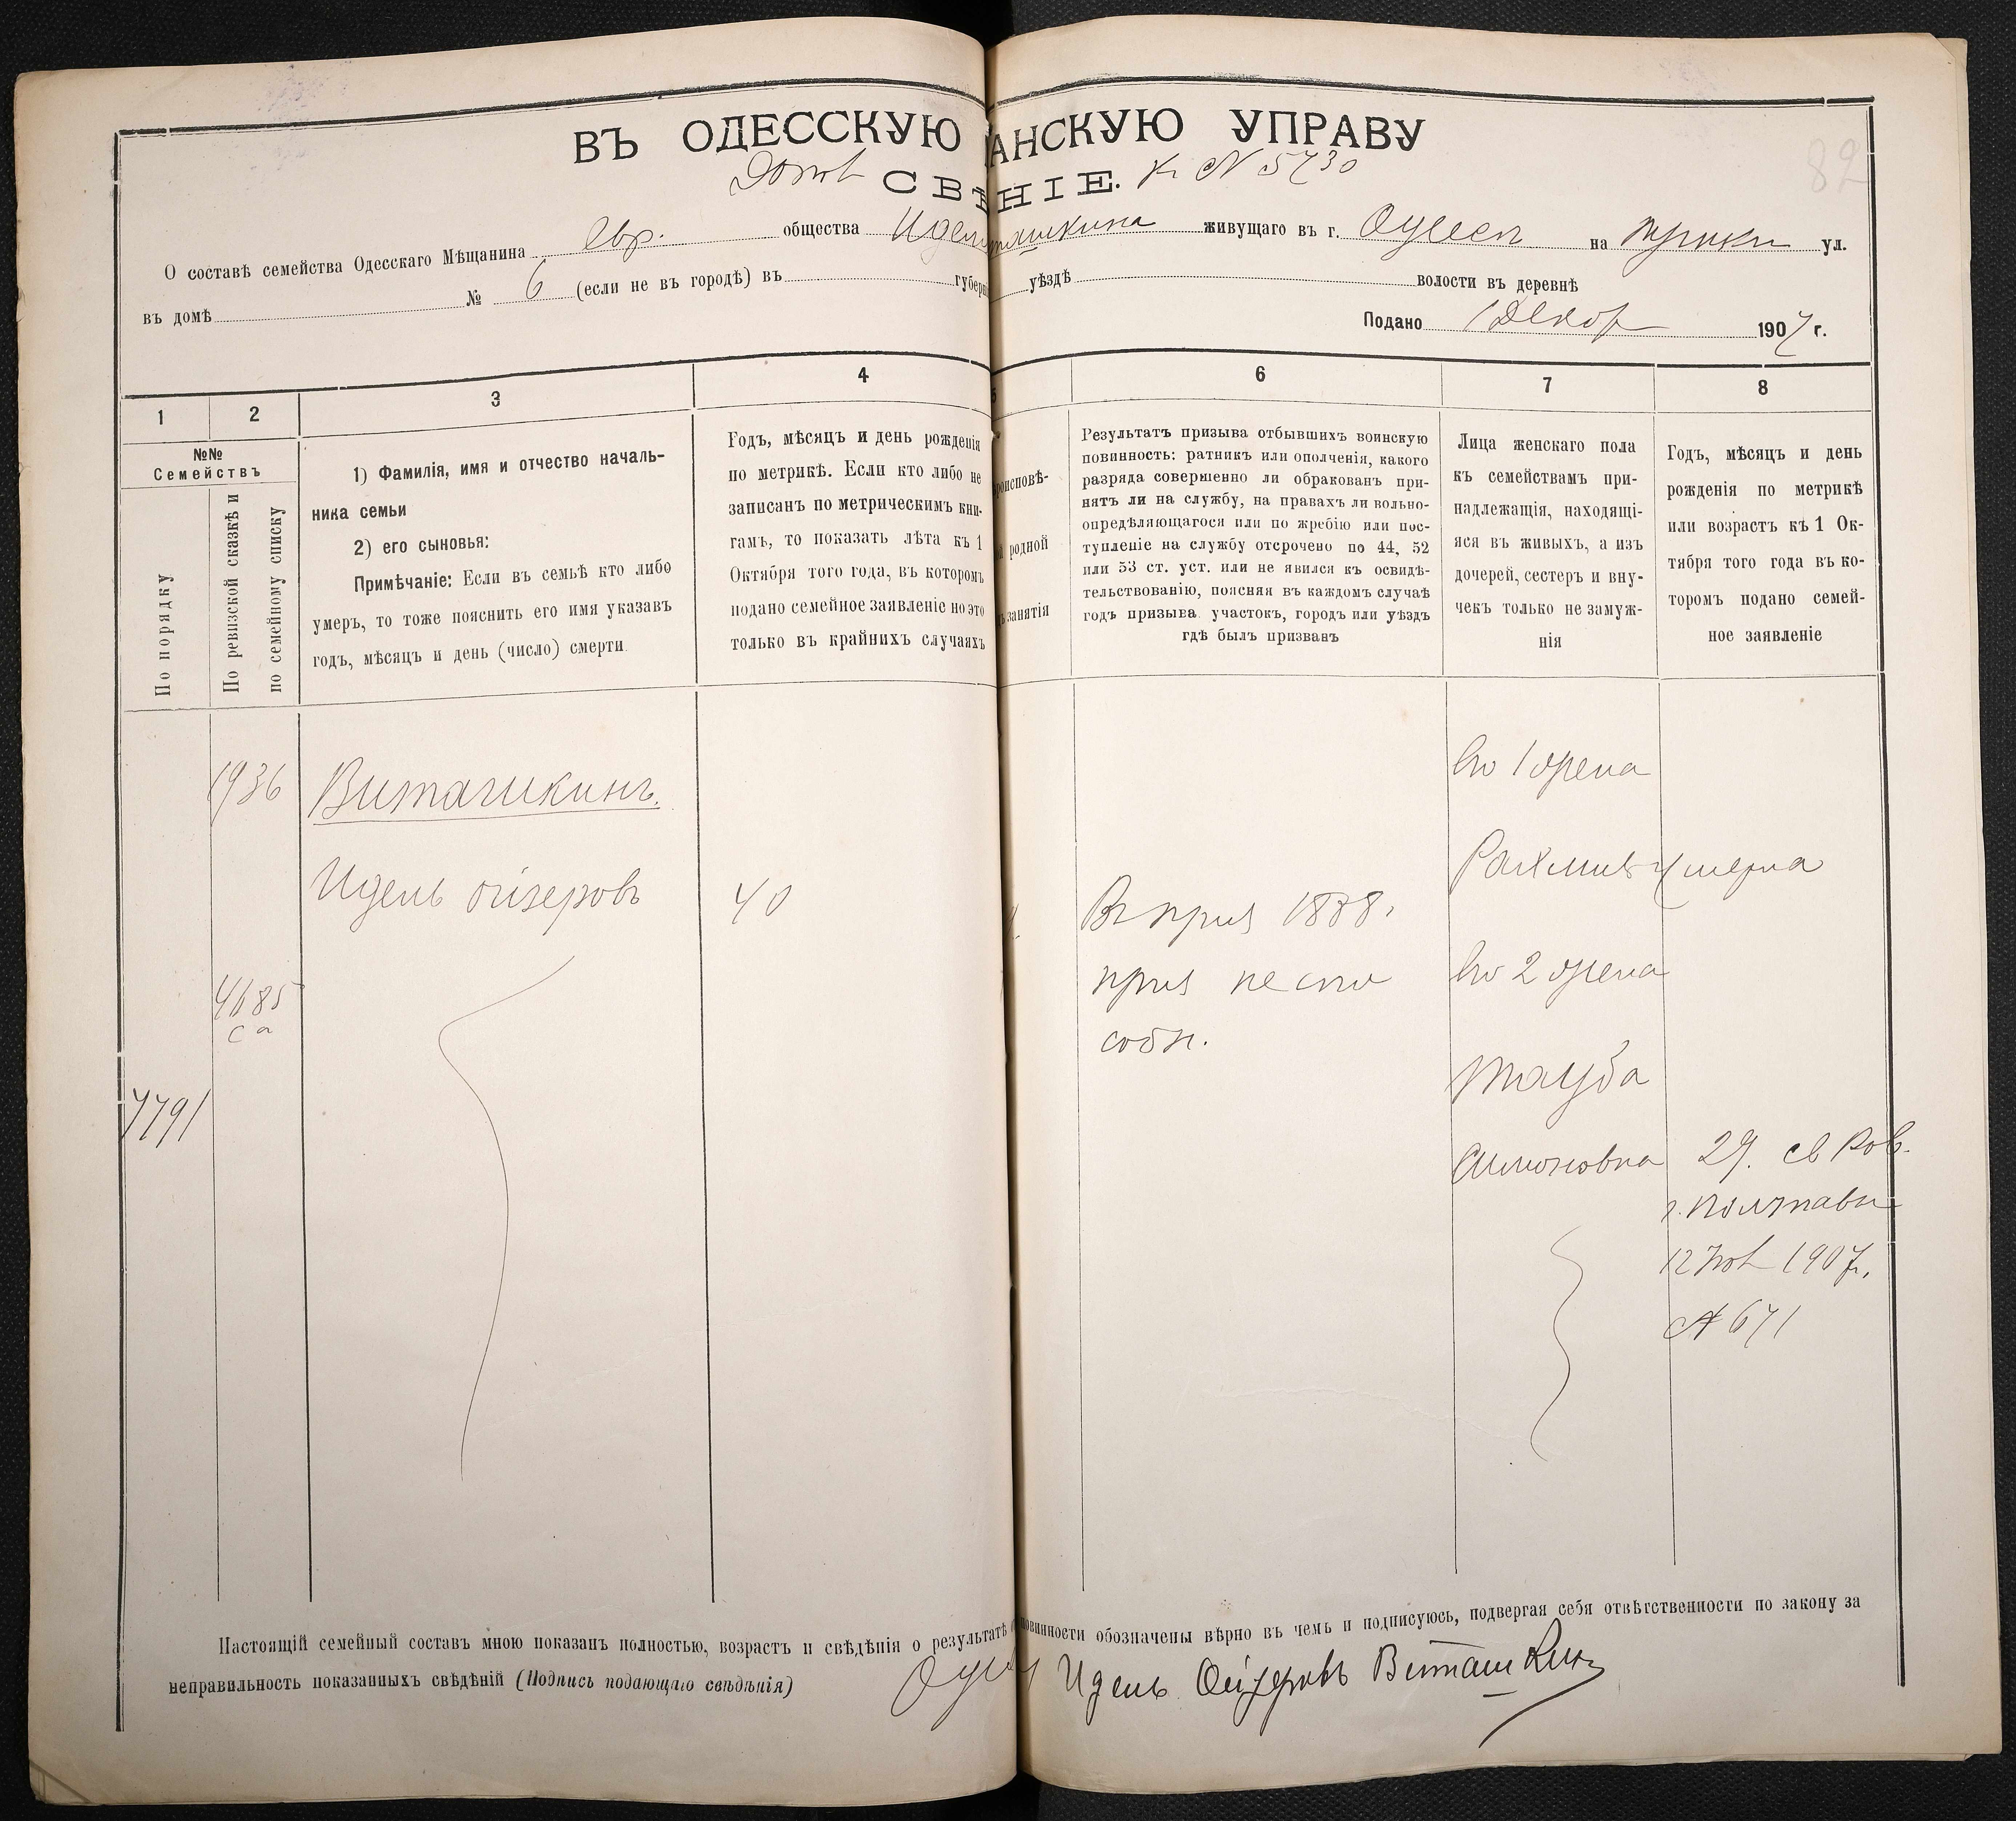 ВЪ ОДЕССКУЮ АНСКУЮ УПРАВУ
СВѢ НІЕ. к № 5730
82
О составѣ семейства Одесскаго Мѣщанина Евр. общества живущаго въ г. Одессѣ на ул.
въ домѣ № 6 (если не въ городѣ) въ губерн уѣздѣ волости въ деревнѣ
Подано 1 Декаб 1907 г.
1 2 3 4 5 6 7 8
№№
Семействъ
По порядку
По ревизской сказкѣ и
по семейному списку
1) Фамилія, имя и отчество началь-
ника семьи
2) его сыновья:
Примѣчаніе: Если въ семьѣ кто либо
умеръ, то тоже пояснить его имя указавъ
годъ, мѣсяцъ и день (число) смерти
Годъ, мѣсяцъ и день рожденія
по метрикѣ. Если кто либо не
записанъ по метрическимъ кни-
гамъ, то показать лѣта къ 1
Октября того года, въ которомъ
подано семейное заявленіе но это
только въ крайнихъ случаяхъ
роисповѣ-
родной
занятія
Результатъ призыва отбывшихъ воинскую
повинность: ратникъ или ополченія, какого
разряда совершенно ли обракованъ при-
нятъ ли на службу, на правахъ ли вольно-
опредѣляющагося или по жребію или пос-
тупленіе на службу отсрочено по 44, 52
или 53 ст. уст. или не явился къ освидѣ-
тельствованію, поясняя въ каждомъ случаѣ
годъ призыва участокъ, городъ или уѣздъ
гдѣ былъ призванъ
Лица женскаго пола
къ семействамъ при-
надлежащія, находящі-
яся въ живыхъ, а изъ
дочерей, сестеръ и вну-
чекъ только не замуж-
нія
Годъ, мѣсяцъ и день
рожденія по метрикѣ
или возрастъ къ 1 Ок-
тября того года въ ко-
торомъ подано семей-
ное заявленіе
1936
Виташкинъ.
Идель Ойзеровъ 40
4685
са
7791
Въ приз 1888.
приз не спо
собн.
его 1 жена
умерла
его 2 жена
Тауба
Симоновна 29. св Рав.
г. Полтавы
12 Ноя 1907г.
№ 671
Настоящій семейный составъ мною показанъ полностью, возрастъ и свѣдѣнія о результатѣ повинности обозначены вѣрно въ чемъ и подписуюсь, подвергая себя отвѣтственности по закону за
неправильность показанныхъ свѣдѣній (Подпись подающаго свѣдѣнія) Идель Ойзеровъ Виташкинъ